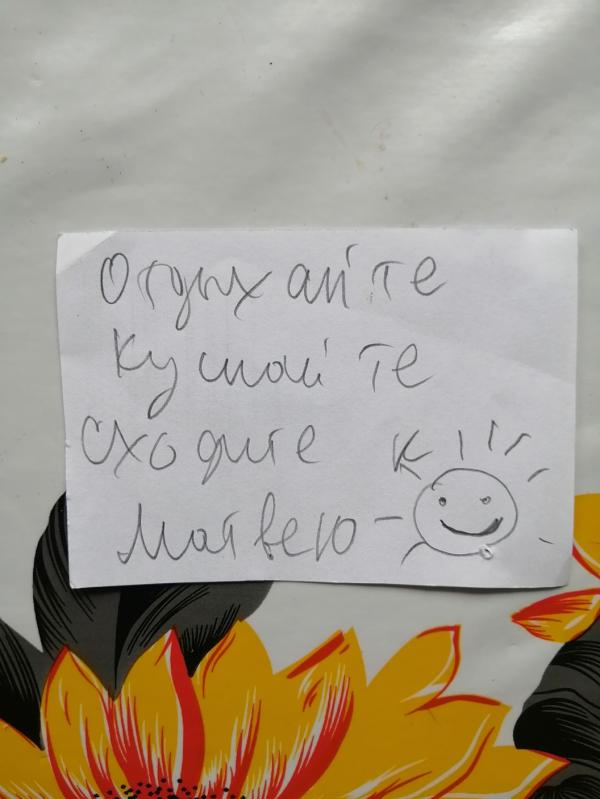 Отдыхайте
Кушайте
Сходите К
Матвею